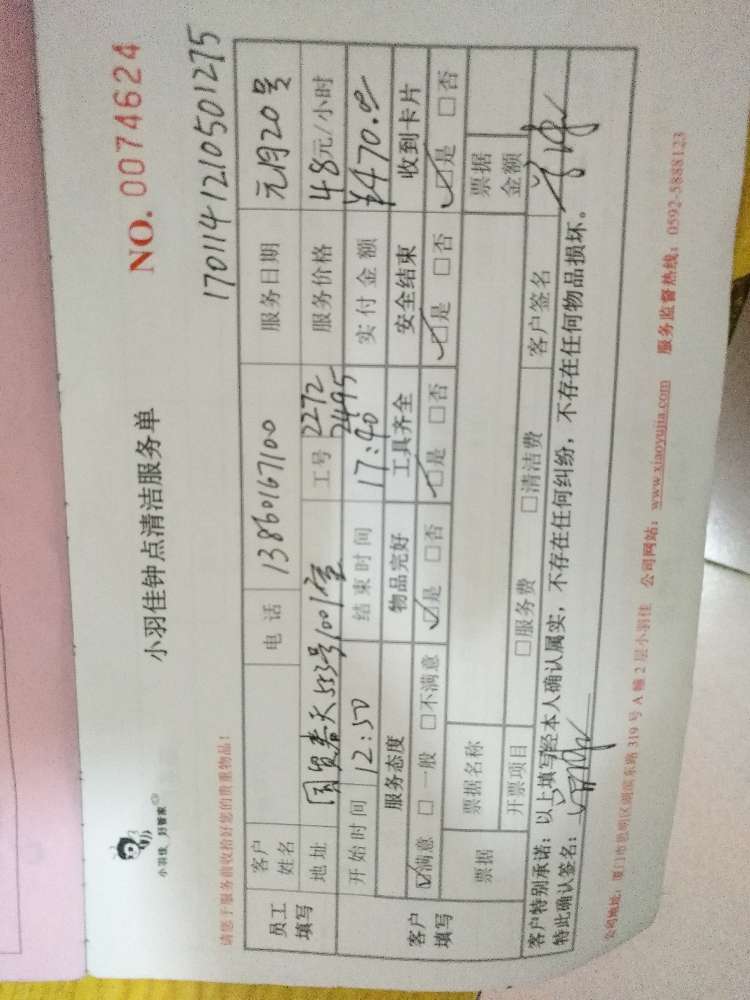 小羽佳 好管家
小羽佳钟点清洁服务单
NO. 0074624
请您于服务前收拾好您的贵重物品!
1701141210501275
员工填写
客户姓名
电话 13860167100
服务日期 元月20号
地址 国贸春天553号1001室
工号 2272 2495
服务价格 48元/小时
开始时间 12:50
结束时间 17:40
实付金额 ¥470.0
客户填写
服务态度 物品完好 工具齐全 安全结束 收到卡片
☑满意 □一般 □不满意 ☑是 □否 ☑是 □否 ☑是 □否 ☑是 □否
票据 票据名称 票据金额
开票项目 □服务费 □清洁费
客户特别承诺:以上填写经本人确认属实,不存在任何纠纷,不存在任何物品损坏。
特此确认签名: 客户签名
公司地址:厦门市思明区湖滨东路 319 号 A 幢 2 层小羽佳 公司网站:www.xiaoyujia.com 服务监督热线:0592-5888123